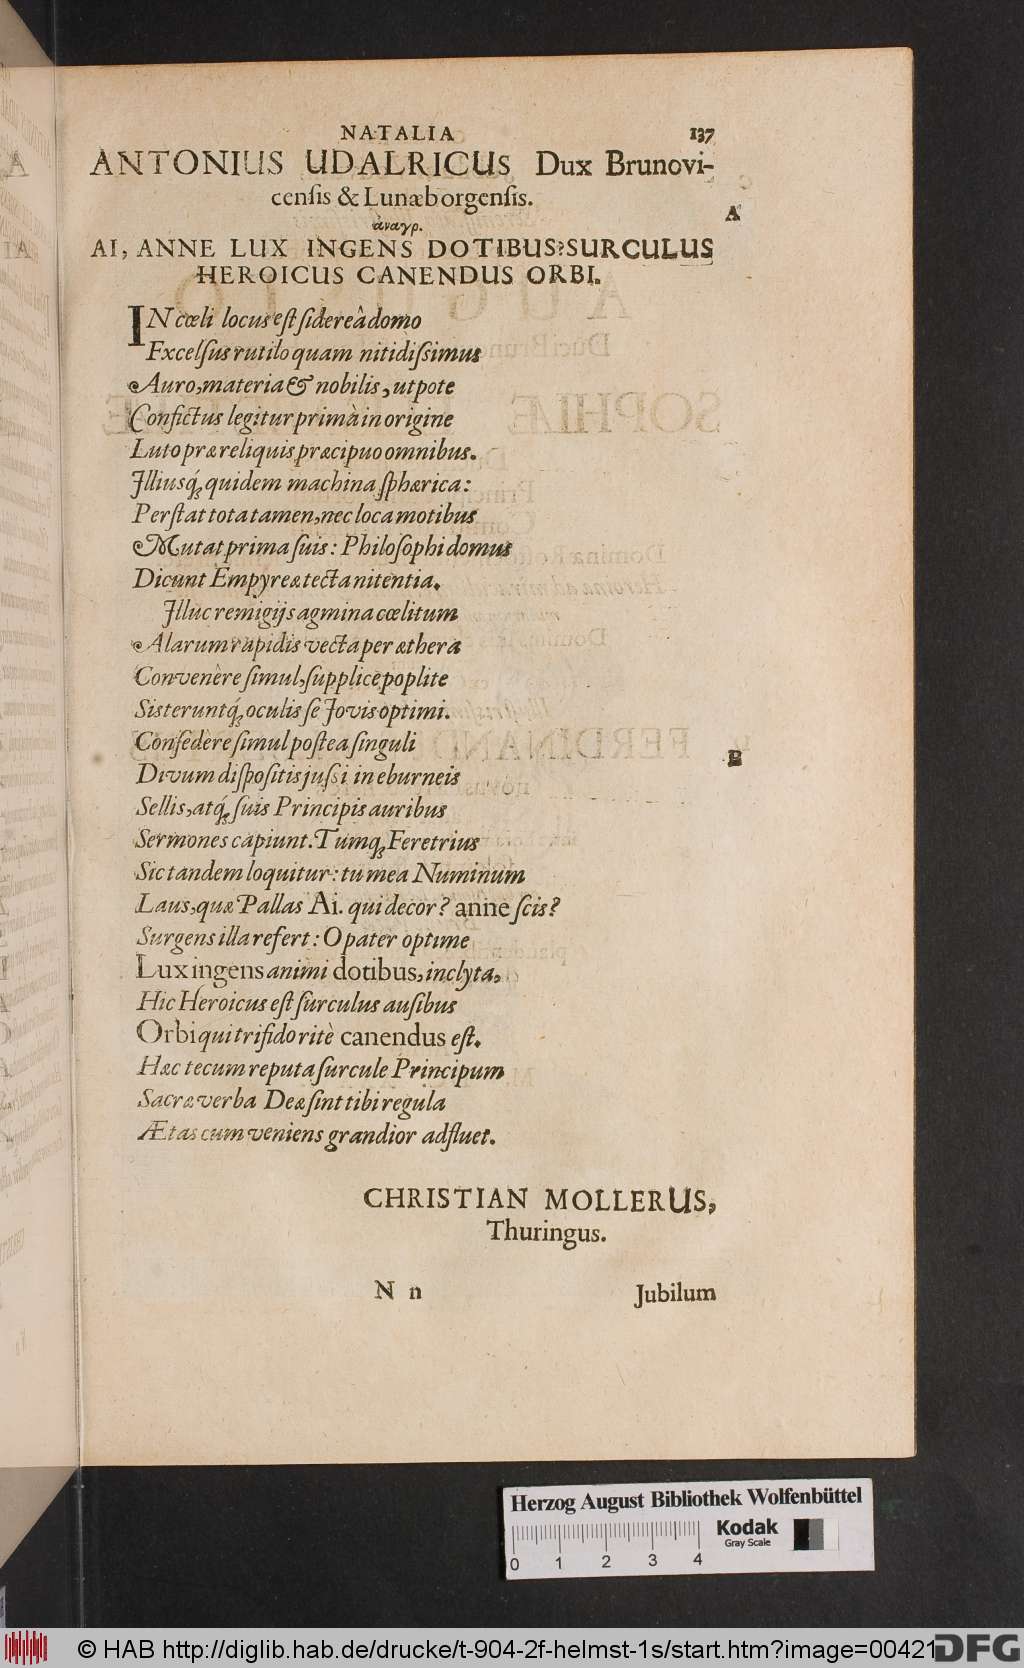 NATALIA 137
ANTONIUS UDALRICUS Dux Brunovi-
censis & Lunæborgensis.
A
ἀναγρ.
AI, ANNE LUX INGENS DOTIBUS? SURCULUS
HEROICUS CANENDUS ORBI.
IN cœli locus est sidereâ domo
Excelsus rutilo quam nitidissimus
Auro, materia & nobilis, utpote
Confictus legitur primà in origine
Luto præ reliquis præcipuo omnibus.
Illiusq́; quidem machina sphærica:
Perstat tota tamen, nec loca motibus
Mutat prima suis: Philosophi domus
Dicunt Empyreæ tecta nitentia.
Illuc remigijs agmina cœlitum
Alarum rapidis vecta per æthera
Convenère simul, supplice poplite
Sisteruntq́; oculis se Jovis optimi.
Consedère simul postea singuli
B
Divum dispositis jussi in eburneis
Sellis, atq́; suis Principis auribus
Sermones capiunt. Tumq; Feretrius
Sic tandem loquitur: tu mea Numinum
Laus, quæ Pallas Ai. qui decor? anne scis?
Surgens illa refert: O pater optime
Lux ingens animi dotibus, inclyta,
Hic Heroicus est surculus ausibus
Orbi qui trifido ritè canendus est.
Hæc tecum reputa surcule Principum
Sacræ verba Deæ sint tibi regula
Ætas cum veniens grandior adfluet.
CHRISTIAN MOLLERUS,
Thuringus.
N n Jubilum
Herzog August Bibliothek Wolfenbüttel
Kodak
Gray Scale
0 1 2 3 4
© HAB http://diglib.hab.de/drucke/t-904-2f-helmst-1s/start.htm?image=00421
DFG